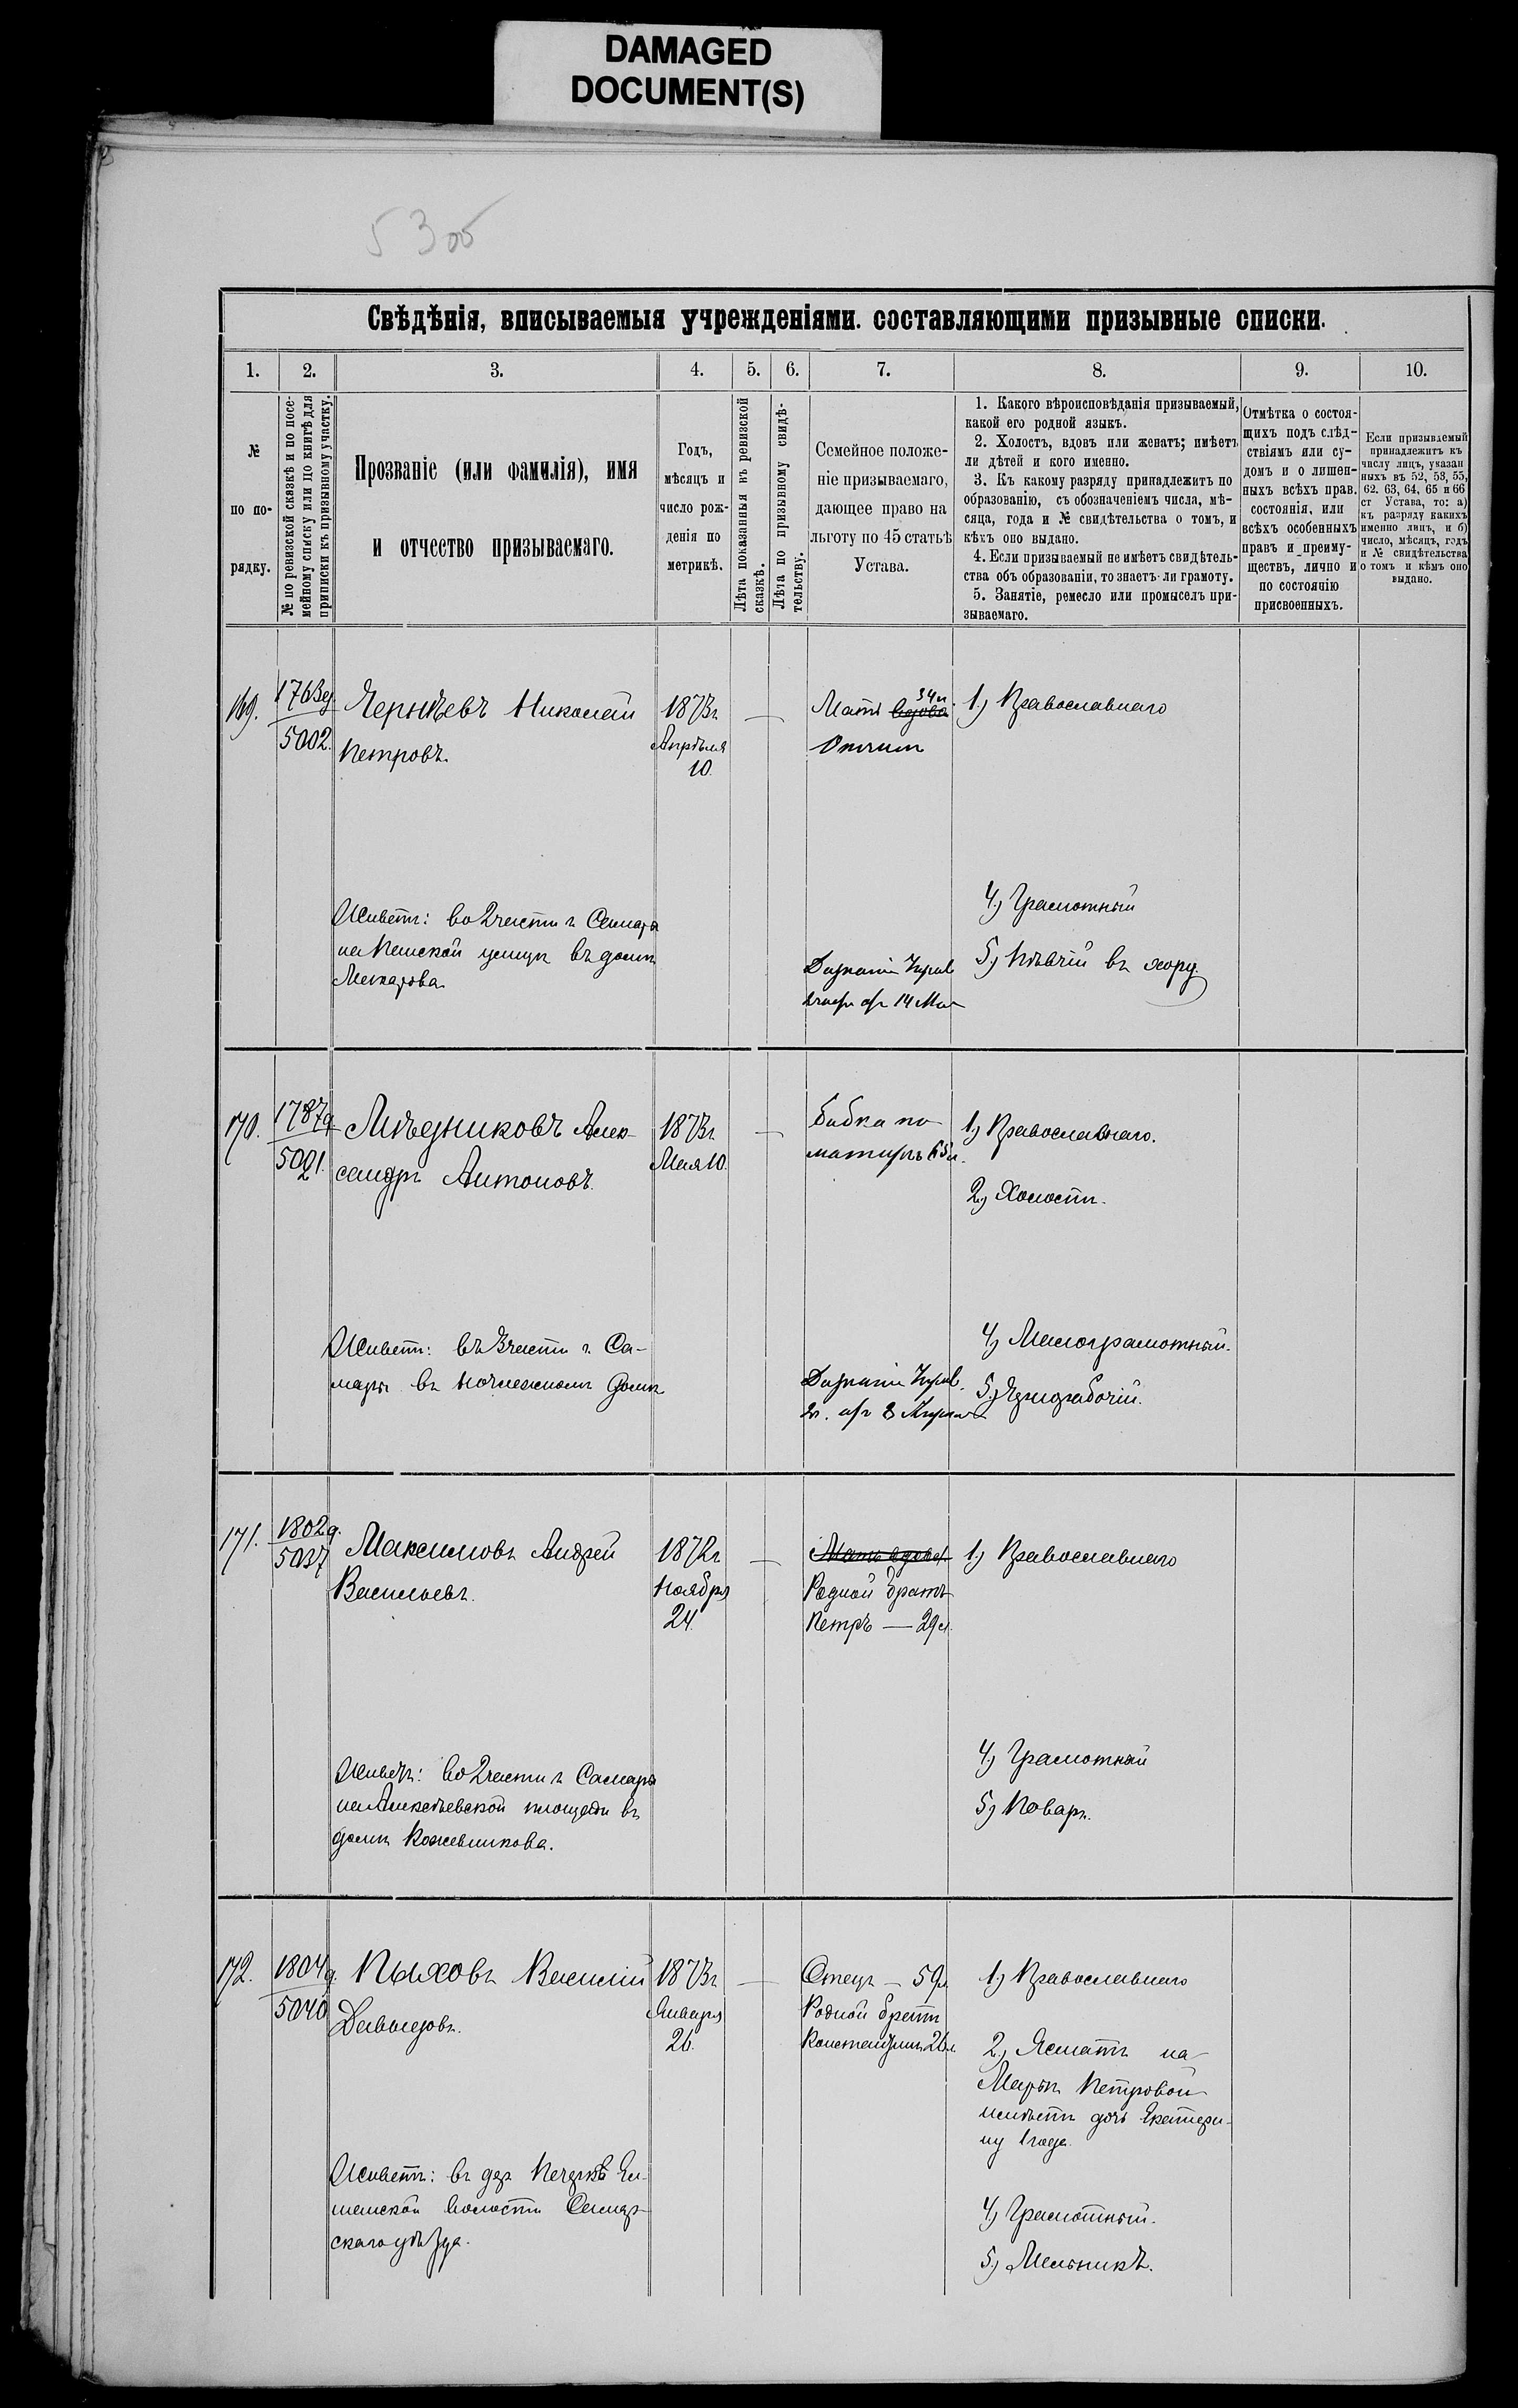 DAMAGED
DOCUMENT(S)
53об
Свѣдѣнія, вписываемыя учрежденіями. составляющими призывные списки.
1. 2. 3. 4. 5. 6. 7. 8. 9. 10.
№
по по-
рядку.
№ по ревизской сказкѣ и по посе-
мейному списку или по книгѣ для
приписки къ призывному участку.
Прозваніе (или фамилія), имя
и отчество призываемаго.
Годъ,
мѣсяцъ и
число рож-
денія по
метрикѣ.
Лѣта показанныя къ ревизской
сказкѣ.
Лѣта по призывному свидѣ-
тельству.
Семейное положе-
ніе призываемаго,
дающее право на
льготу по 45 статьѣ
Устава.
1. Какого вѣроисповѣданія призываемый,
какой его родной языкъ.
2. Холостъ, вдовъ или женатъ; имѣетъ
ли дѣтей и кого именно.
3. Къ какому разряду принадлежитъ по
образованію, съ обозначеніемъ числа, мѣ-
сяца, года и № свидѣтельства о томъ, и
кѣмъ оно выдано.
4. Если призываемый не имѣетъ свидѣтель-
ства объ образованіи, то знаетъ-ли грамоту.
5. Занятіе, ремесло или промыселъ при-
зываемаго.
Отмѣтка о состоя-
щихъ подъ слѣд-
ствіямъ или су-
домъ и о лишен-
ныхъ всѣхъ прав.
состоянія, или
всѣхъ особенныхъ
правъ и преиму-
ществъ, лично и
по состоянію
присвоенныхъ.
Если призываемый
принадлежитъ къ
числу лицъ, указан
ныхъ въ 52, 53, 55,
62. 63, 64, 65 и 66
ст Устава, то: а)
къ разряду какихъ
именно лицъ, и б)
число, мѣсяцъ, годъ
и № свидѣтельства
о томъ и кѣмъ оно
выдано.
169.
5002.
Чернѣевъ Николай
Петровъ.
1873г
Апрѣля
10.
Мать вдова 34л.
Отчим
1) Православнаго
4) Грамотный
5) Пѣвчій въ хору.
Живетъ: во 2 части г. Самары
на улицѣ въ домѣ
14 Мая
170.
1787д
5021.
Мѣдниковъ Алек-
сандръ Антоновъ.
1873г
Мая 10.
Бабка по
матери 65л.
1) Православнаго.
2) Холостъ.
4) Малограмотный.
5) Чернорабочій.
Живетъ: въ 3 части г. Са-
мары въ ночлежномъ домѣ
171.
1802д.
5037
Максимовъ Андрей
Васильевъ.
1872г
Ноября
24.
Мать вдова
Родной братъ
Петръ — 29л.
1) Православнаго
4) Грамотный
5) Поваръ.
Живетъ: во 2 части г. Самары
на Алексѣевской площади въ
домѣ Кожевникова.
172.
1804д.
5040
Пыховъ Василій
Давыдовъ.
1873г
Января
26.
Отецъ — 59л.
Родной братъ
Константинъ 26л.
1) Православнаго
2) Женатъ на
Марьѣ Петровой
имѣетъ дочь Екатери-
ну 1 года.
4) Грамотный.
5) Мельникъ.
Живетъ: въ дер.
волости Самар-
скаго уѣзда.